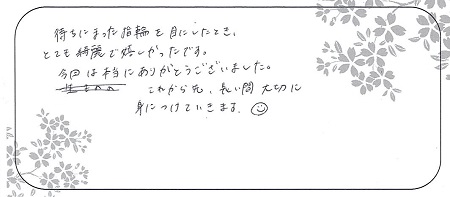 待ちにまった指輪を目にしたとき、
とても綺麗で嬉しかったです。
今回は本当にありがとうございました。
これから先、長い間大切に
身につけていきます。